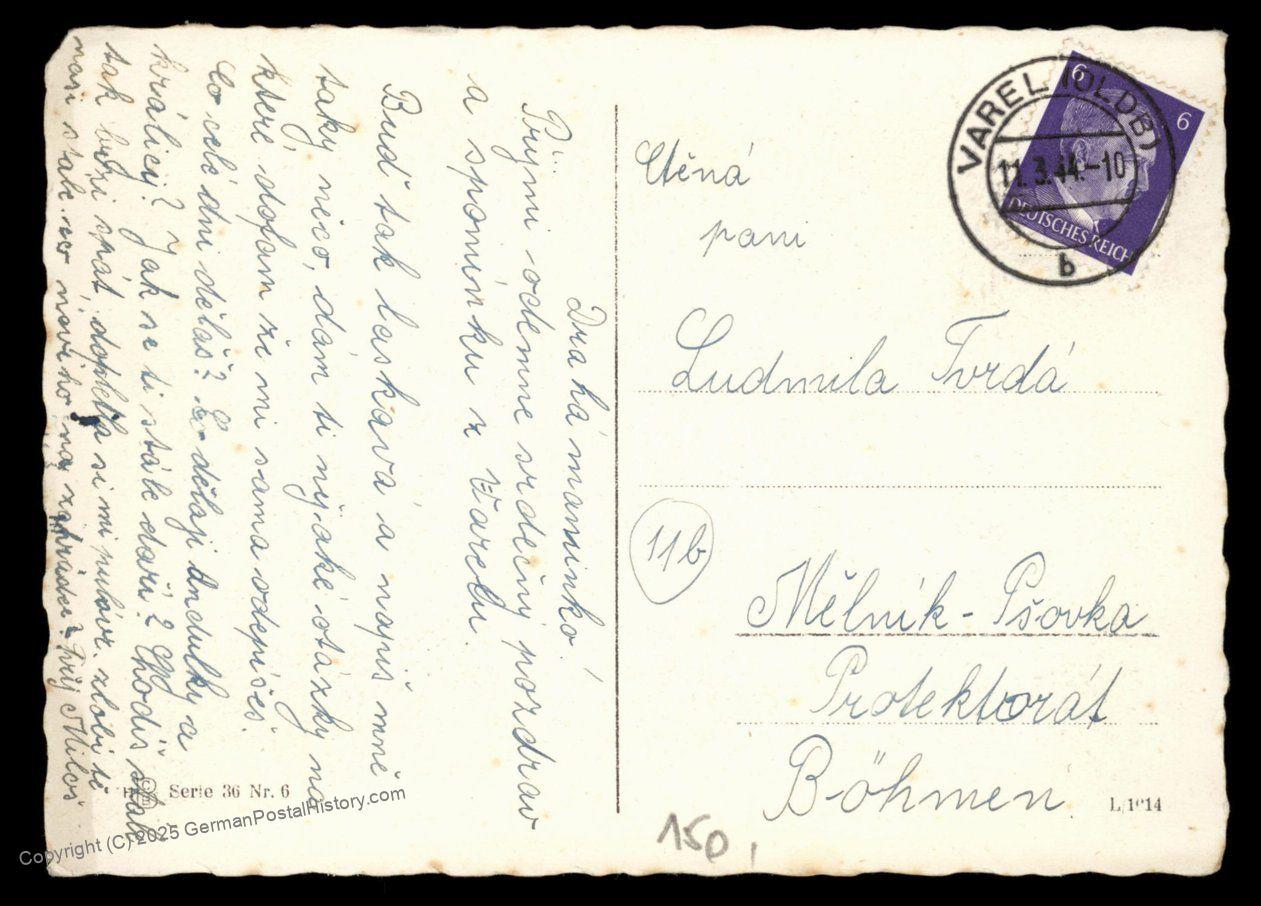 Drahá maminko!
Příjmi odemne srdečný pozdrav
a spomínku z Varelu.
Buď tak laskavá a napiš mně
taky něco, dám ti nějaké otázky na
které doufam že mi sama odepíšeš.
Co celé dni děláš? Co dělaji Andulky a
králici? Jak se ti stále daří? Chodíš stale
tak brzi spát, dopletla si mi pulovr, zlobí tě
naši stale, co noveho na zahrádce? Tvůj Miloš
Ctěná
pani
Ludmila Tvrdá
11b
Mělník - Pšovka
Protektorát
Böhmen
VAREL (OLDB)
11.3.44.-10
b
6
6
DEUTSCHES REICH
Serie 36 Nr. 6
L/1014
150,
Copyright (C) 2025 GermanPostalHistory.com